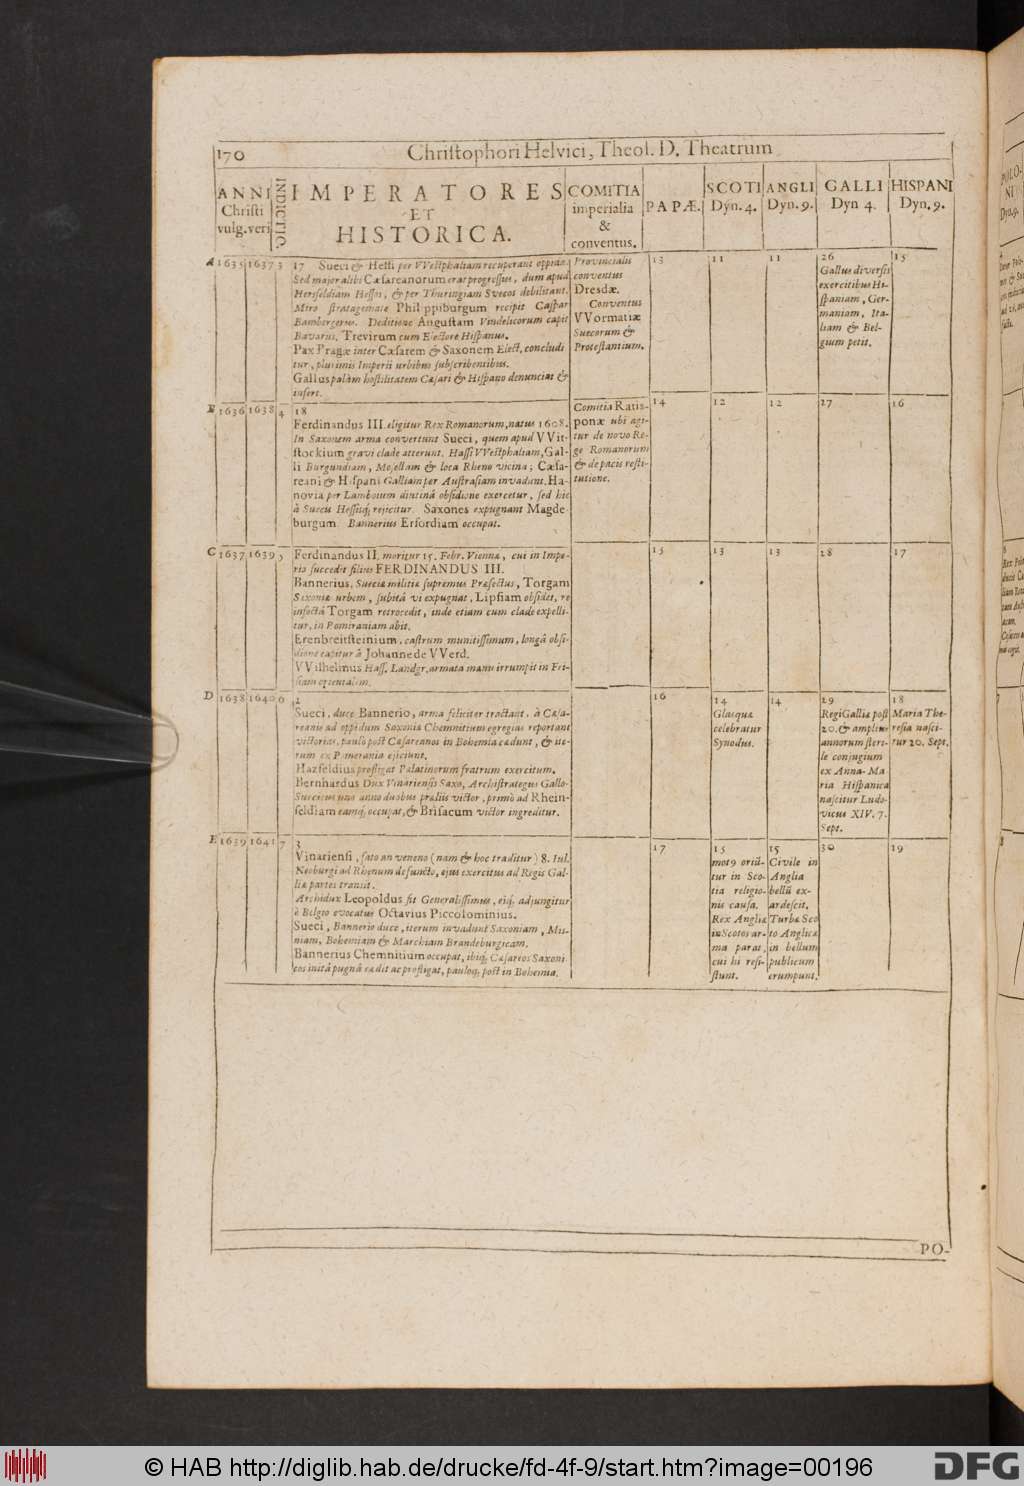 170
Christophori Helvici, Theol. D. Theatrum
ANNI
Christi
vulg. veri
INDICTIC.
IMPERATORES
ET
HISTORICA.
COMITIA
imperialia
&
conventus.
PAPÆ.
SCOTI
Dyn. 4.
ANGLI
Dyn. 9.
GALLI
Dyn 4.
HISPANI
Dyn. 9.
A 1635 1637 3
17 Sueci & Hessi per VVestphaliam recuperant oppida.
Sed major alibi Cæsareanorum erat progressus, dum apud
Hersfeldiam Hessos, & per Thuringiam Svecos debilitant.
Miro stratagemate Philippiburgum recipit Caspar
Bambergerus. Deditione Augustam Vindelicorum capit
Bavarus, Trevirum cum Electore Hispanus.
Pax Pragæ inter Cæsarem & Saxonem Elect. concludi
tur, plurimis Imperii urbibus subscribentibus.
Gallus palàm hostilitatem Cæsari & Hispano denunciat &
infert.
Provincialis
conventus
Dresdæ.
Conventus
VVormatiæ
Suecorum &
Protestantium.
13
11
11
26
Gallus diversis
exercitibus Hi-
spaniam, Ger-
maniam, Ita-
liam & Bel-
gium petit.
15
B 1636 1638 4
18
Ferdinandus III. eligitur Rex Romanorum, natus 1608.
In Saxonem arma convertunt Sueci, quem apud VVit-
stockium gravi clade atterunt. Hassi VVestphaliam, Gal-
li Burgundiam, Mosellam & loca Rheno vicina; Cæsa-
reani & Hispani Galliam per Austrasiam invadunt. Ha-
novia per Lamboium diutinâ obsidione exercetur, sed hic
à Suecis Hessisq; rejicitur. Saxones expugnant Magde
burgum. Bannerius Erfordiam occupat.
Comitia Ratis-
ponæ ubi agi-
tur de novo Re-
ge Romanorum
& de pacis resti-
tutione.
14
12
12
27
16
C 1637 1639 5
Ferdinandus II. moritur 15. Febr. Viennæ, cui in Impe-
rio succedit filius FERDINANDUS III.
Bannerius, Sueciæ militiæ supremus Præfectus, Torgam
Saxoniæ urbem, subitâ vi expugnat, Lipsiam obsidet, re
infectâ Torgam retrocedit, inde etiam cum clade expelli-
tur, in Pomeraniam abit.
Erenbreitsteinium, castrum munitissimum, longâ obsi-
dione capitur à Johanne de VVerd.
VVilhelmus Hass. Landgr. armata manu irrumpit in Fri-
siam orientalem.
15
13
13
28
17
D 1638 1640 6
2
Sueci, duce Bannerio, arma feliciter tractant, à Cæsa-
reanis ad oppidum Saxoniæ Chemnitium egregias reportant
victorias, paulo post Cæsareanos in Bohemia cædunt, & ite-
rum ex Pomerania ejiciunt.
Hazfeldius profligat Palatinorum fratrum exercitum.
Bernhardus Dux Vinariensis Saxo, Archistrategus Gallo-
Suecicus uno anno duobus præliis victor, primò ad Rhein-
feldiam eamq; occupat, & Brisacum victor ingreditur.
16
14
Glasquæ
celebratur
Synodus.
14
29
Regi Galliæ post
20. & amplius
annorum steri-
le conjugium
ex Anna- Ma
ria Hispanica
nascitur Ludo-
vicus XIV. 7.
Sept.
18
Maria The-
resia nasci-
tur 20. Sept.
E 1639 1641 7
3
Vinariensi, fato an veneno (nam & hoc traditur) 8. Iul.
Neoburgi ad Rhenum defuncto, ejus exercitus ad Regis Gal-
liæ partes transit.
Archidux Leopoldus fit Generalissimus, eiq; adjungitur
è Belgio evocatus Octavius Piccolominius.
Sueci, Bannerio duce, iterum invadunt Saxoniam, Mis-
niam, Bohemiam & Marchiam Brandeburgicam.
Bannerius Chemnitium occupat, ibiq; Cæsareos Saxoni
cos inita pugnâ cædit ac profligat, pauloq; post in Bohemia.
17
15
mot9 oriū-
tur in Sco-
tia religio-
nis causa.
Rex Angliæ
in Scotos ar-
ma parat,
cui hi resi-
stunt.
15
Civile in
Anglia
bellū ex-
ardescit.
Turbæ Sco
to Anglicæ
in bellum
publicum
erumpunt.
30
19
PO-
© HAB http://diglib.hab.de/drucke/fd-4f-9/start.htm?image=00196
DFG